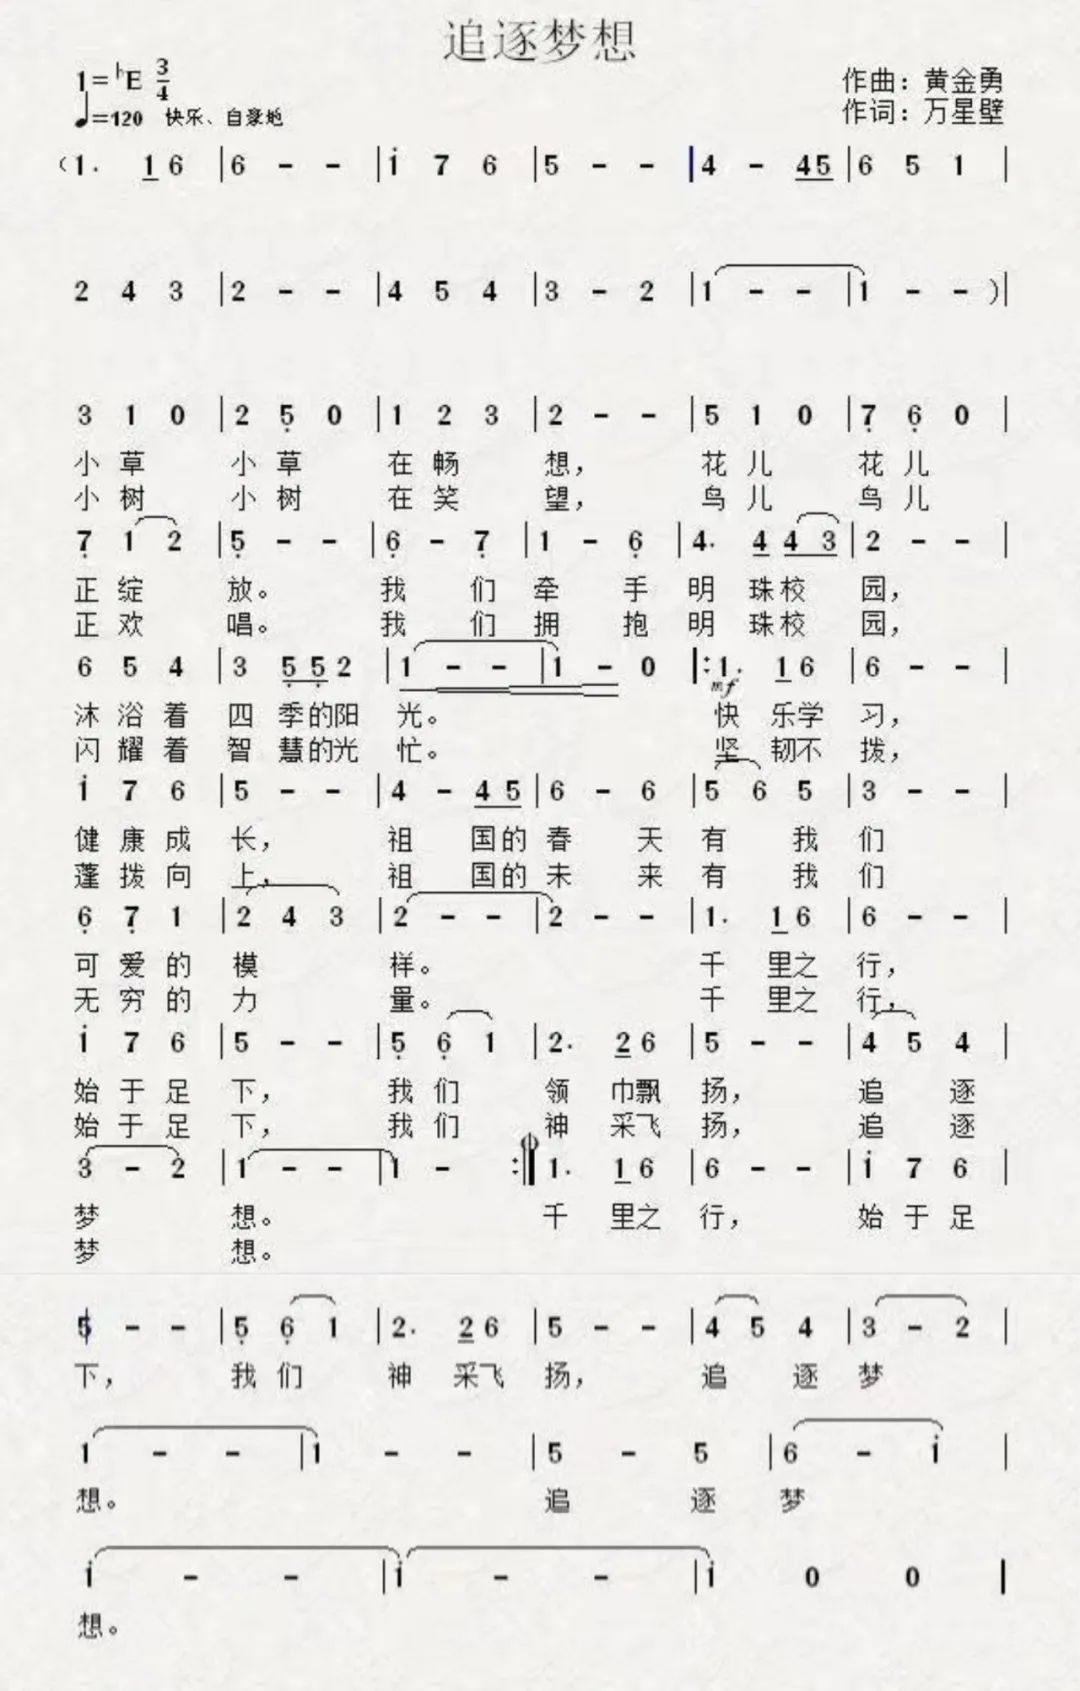 追逐梦想
1=♭E 3/4
作曲：黄金勇
♩=120 快乐、自豪地
作词：万星壁
（1· 1 6 |6 - - |i 7 6 |5 - - |4 - 45 |6 5 1 |
2 4 3 |2 - - |4 5 4 |3 - 2 |1 - - |1 - - ）|
3 1 0 |2 5̣ 0 |1 2 3 |2 - - |5 1 0 |7̣ 6̣ 0 |
小草 小草 在畅 想， 花儿 花儿
小树 小树 在笑 望， 鸟儿 鸟儿
7̣ 1 2 |5̣ - - |6̣ - 7̣ |1 - 6̣ |4· 4 4 3 |2 - - |
正绽 放。 我 们 牵 手 明 珠校 园，
正欢 唱。 我 们 拥 抱 明 珠校 园，
6 5 4 |3 5̣ 5̣ 2 |1 - - |1 - 0 |:1· 1 6 |6 - - |
mf
沐浴着 四 季的阳 光。 快 乐学 习，
闪耀着 智 慧的光 忙。 坚 韧不 拨，
i 7 6 |5 - - |4 - 4 5 |6 - 6 |5 6 5 |3 - - |
健康成 长， 祖 国的 春 天 有 我 们
蓬拨向 上， 祖 国的 未 来 有 我 们
6̣ 7̣ 1 |2 4 3 |2 - - |2 - - |1· 1 6 |6 - - |
可爱的 模 样。 千 里之 行，
无穷的 力 量。 千 里之 行，
i 7 6 |5 - - |5̣ 6̣ 1 |2· 2 6 |5 - - |4 5 4 |
始于足 下， 我们 领 巾飘 扬， 追 逐
始于足 下， 我们 神 采飞 扬， 追 逐
3 - 2 |1 - - |1 - :‖ 1· 1 6 |6 - - |i 7 6 |
梦 想。 千 里之 行， 始于足
梦 想。
5 - - |5̣ 6̣ 1 |2· 2 6 |5 - - |4 5 4 |3 - 2 |
下， 我们 神 采飞 扬， 追 逐 梦
1 - - |1 - - |5 - 5 |6 - i |
想。 追 逐 梦
i - - |i - - |i 0 0 |
想。